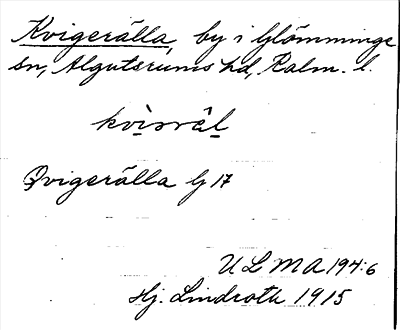 Kvigerälla, by i Glömminge
sn, Algutsrums hd, Kalm. l.
kvisräl
Qvigerälla G 17
ULMA 194:6
Hj. Lindroth 1915